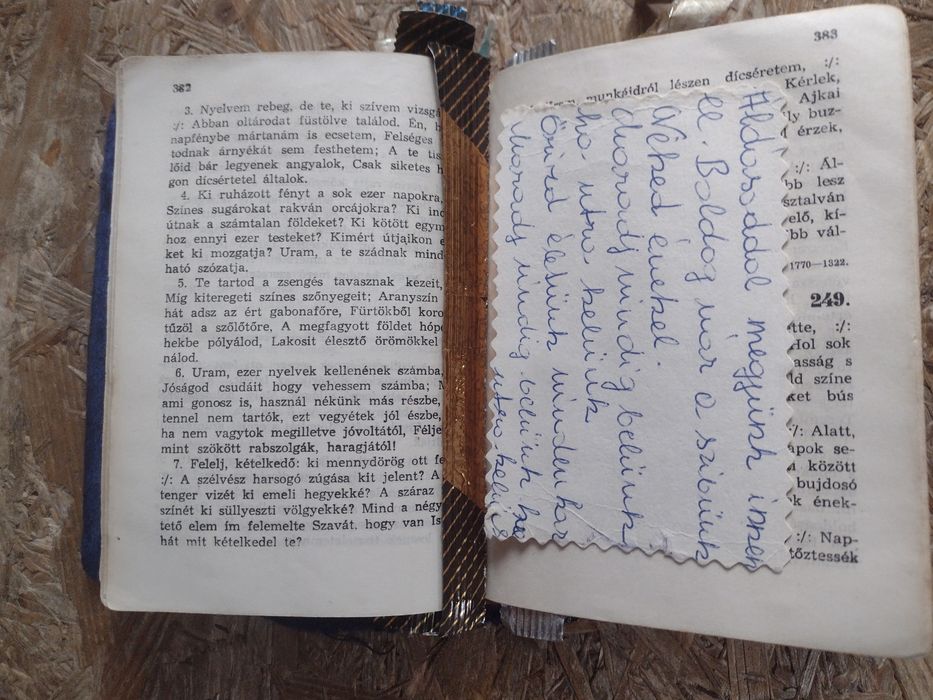 382
3. Nyelvem rebeg, de te, ki szívem vizsgá
:/: Abban oltárodat füstölve találod. Én, h
napfénybe mártanám is ecsetem, Felséges
todnak árnyékát sem festhetem; A te tis
lőid bár legyenek angyalok, Csak siketes h
gon dícsértetel általok.
4. Ki ruházott fényt a sok ezer napokra,
Színes sugárokat rakván orcájokra? Ki inc
útnak a számtalan földeket? Ki kötött egym
hoz ennyi ezer testeket? Kimért útjaikon e
ket ki mozgatja? Uram, a te szádnak mind
ható szózatja.
5. Te tartod a zsengés tavasznak kezeit,
Míg kiteregeti színes szőnyegeit; Aranyszín
hát adsz az ért gabonafőre, Fürtökből koro
tűzöl a szőlőtőre, A megfagyott földet hópe
hekbe pólyálod, Lakosit élesztő örömökkel
nálod.
6. Uram, ezer nyelvek kellenének számba,
Jóságod csudáit hogy vehessem számba; M
ami gonosz is, használ nékünk más részbe,
tennel nem tartók, ezt vegyétek jól észbe,
ha nem vagytok megilletve jóvoltától, Félje
mint szökött rabszolgák, haragjától!
7. Felelj, kételkedő: ki mennydörög ott fe
:/: A szélvész harsogó zúgása kit jelent? A
tenger vizét ki emeli hegyekké? A száraz
színét ki süllyeszti völgyekké? Mind a négy
tető elem ím felemelte Szavát, hogy van Is
hát mit kételkedel te?
383
munkáidról lészen dícséretem, :/:
Kérlek,
Ajkai
ly buz-
érzek,
:/: Ál-
bb lesz
sztalván
elő, kí-
bb vál-
1770—1822.
249.
tte, :/:
Hol sok
asság s
ld színe
ket bús
/: Alatt,
apok se-
között
bujdosó
k ének-
:/: Nap-
tőztessék
Áldásoddal megyünk innen
el. Boldog már a szívünk
Néked énekel.
Maradj mindig velünk
ha útra kelünk
Őrizd életünk minden
Maradj mindig velünk ha
útra kelünk